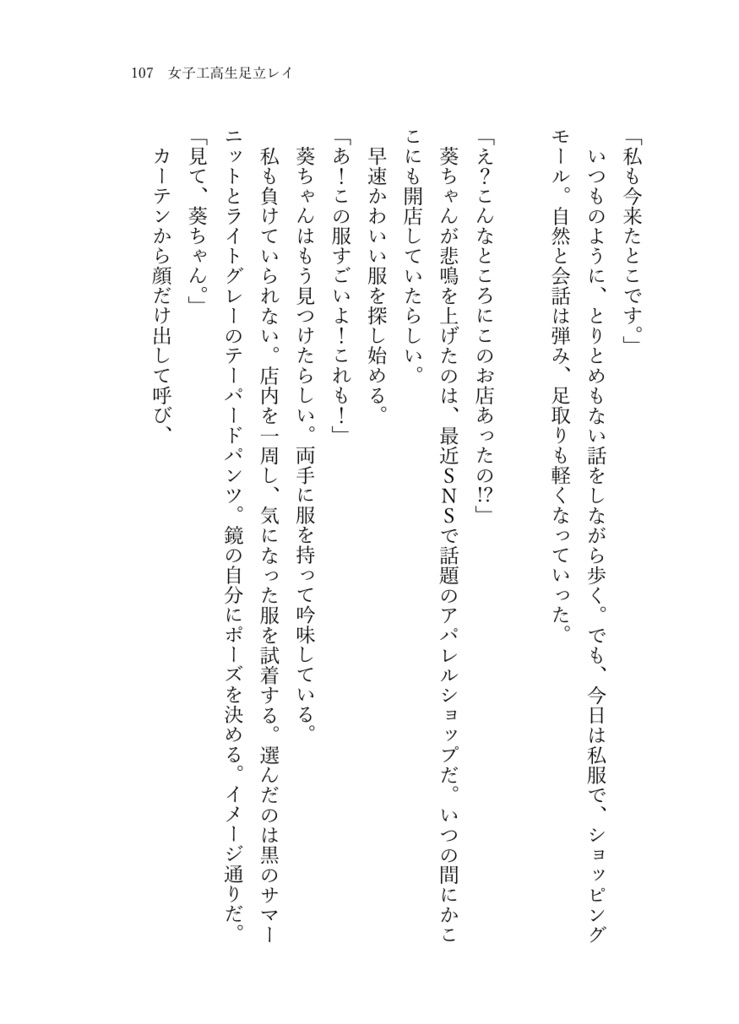 107　女子工高生足立レイ
「私も今来たとこです。」
　いつものように、とりとめもない話をしながら歩く。でも、今日は私服で、ショッピング
モール。自然と会話は弾み、足取りも軽くなっていった。
「え？こんなところにこのお店あったの!?」
　葵ちゃんが悲鳴を上げたのは、最近ＳＮＳで話題のアパレルショップだ。いつの間にかこ
こにも開店していたらしい。
　早速かわいい服を探し始める。
「あ！この服すごいよ！これも！」
　葵ちゃんはもう見つけたらしい。両手に服を持って吟味している。
　私も負けていられない。店内を一周し、気になった服を試着する。選んだのは黒のサマー
ニットとライトグレーのテーパードパンツ。鏡の自分にポーズを決める。イメージ通りだ。
「見て、葵ちゃん。」
　カーテンから顔だけ出して呼び、